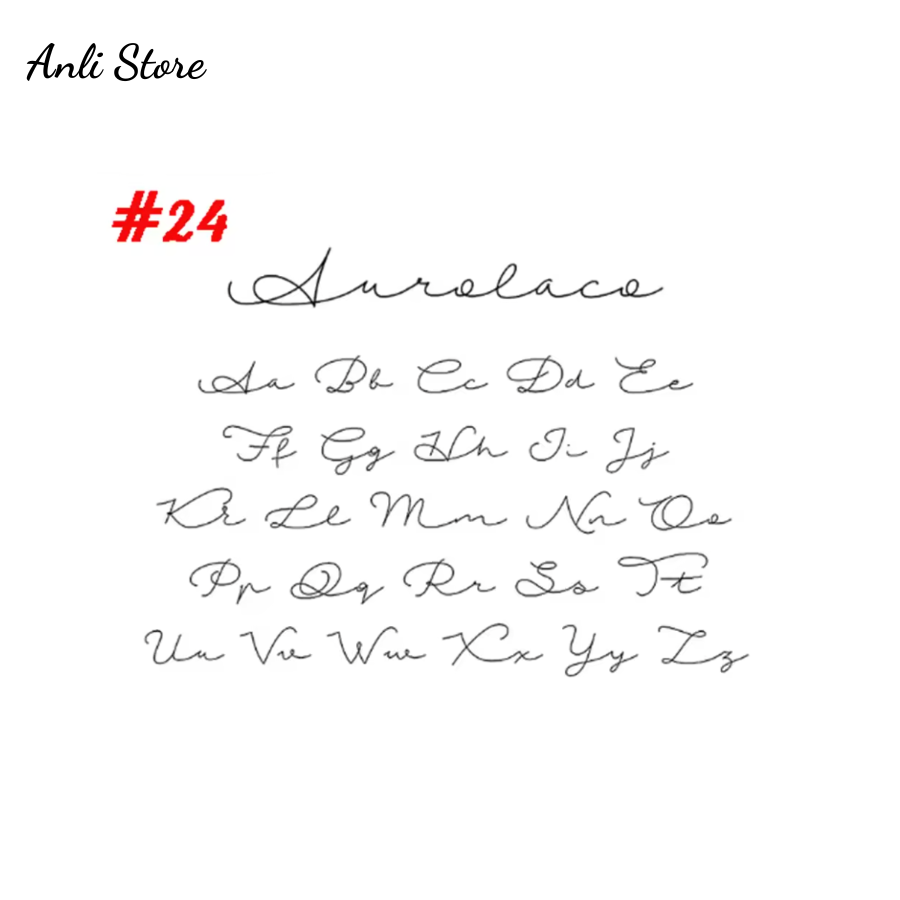 Anli Store
#24
Aurolaco
Aa Bb Cc Dd Ee
Ff Gg Hh Ii Jj
Kk Ll Mm Nn Oo
Pp Qq Rr Ss Tt
Uu Vv Ww Xx Yy Zz